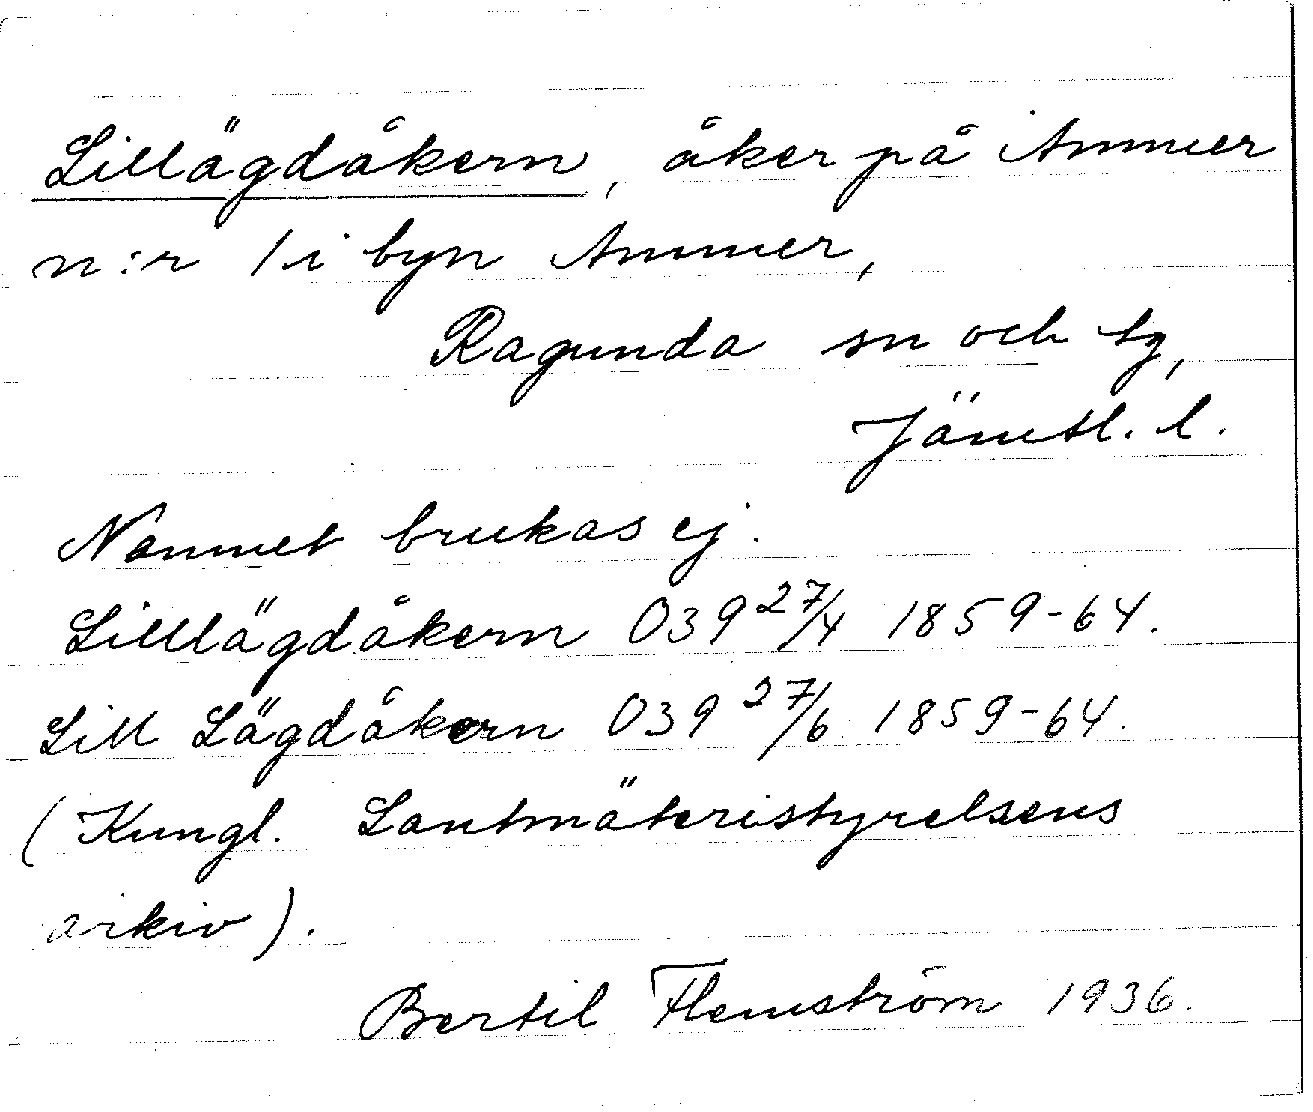 Lillägdåkern, åker på Ammer
n:r 1 i byn Ammer,
Ragunda sn och tg,
Jämtl. l.
Namnet brukas ej.
Lilllägdåkern O39 27/4 1859-64.
Lill Lägdåkern O39 27/6 1859-64.
(Kungl. Lantmäteristyrelsens
arkiv).
Bertil Flemström 1936.